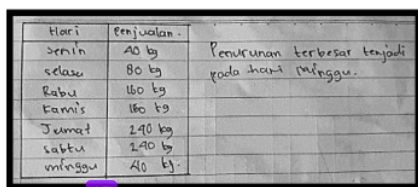 Hari Penjualan.
Senin 40 kg
selasa 80 kg
Rabu 160 kg
Kamis 160 kg
Jumat 240 kg
sabtu 240 kg
minggu 40 kg.
Penurunan terbesar terjadi
pada hari minggu.